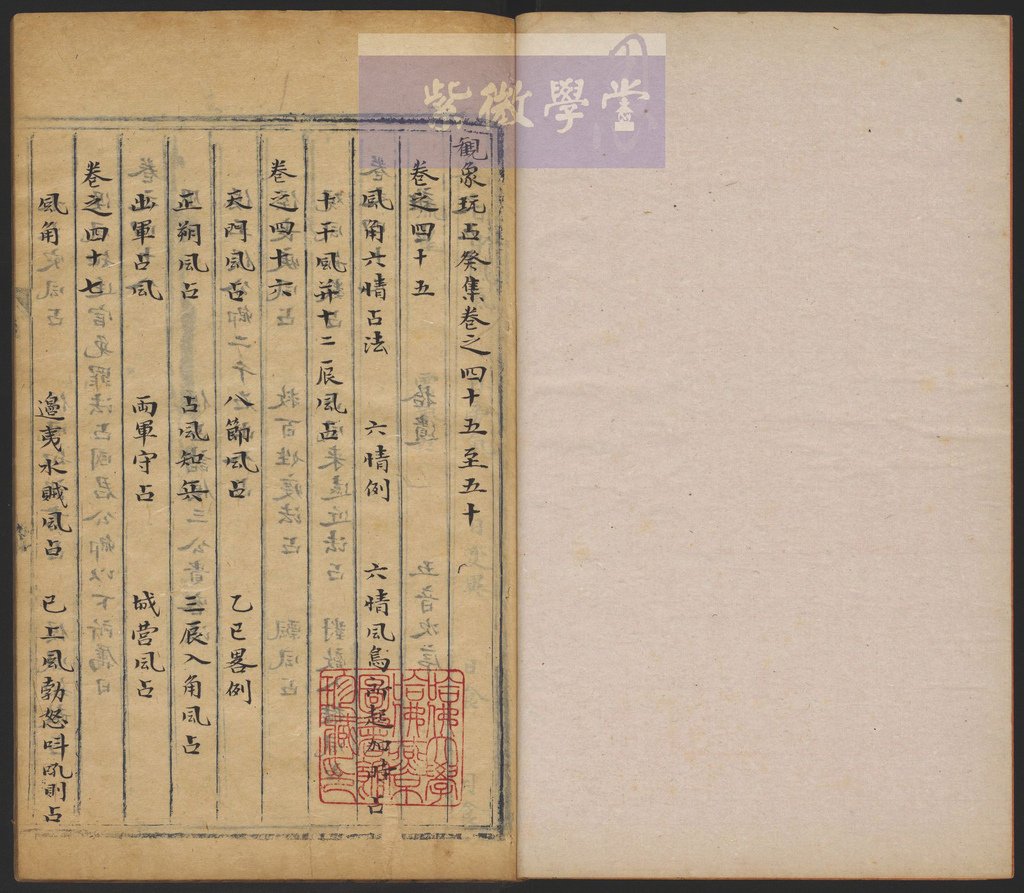 紫微學堂
觀象玩占癸集卷之四十五至五十
卷之四十五
風角六情占法 六情例 六情風鳥所起加時占
十干風并十二辰風占
卷之四十六
天門風占 八節風占 乙巳畧例
正朔風占 占風知兵 三辰入角風占
出軍占風 兩軍守占 城营風占
卷之四十七
風角 邉夷水賊風占 已上風勃怒吽吼則占
哈佛大學哈佛燕京圖書館珍藏印